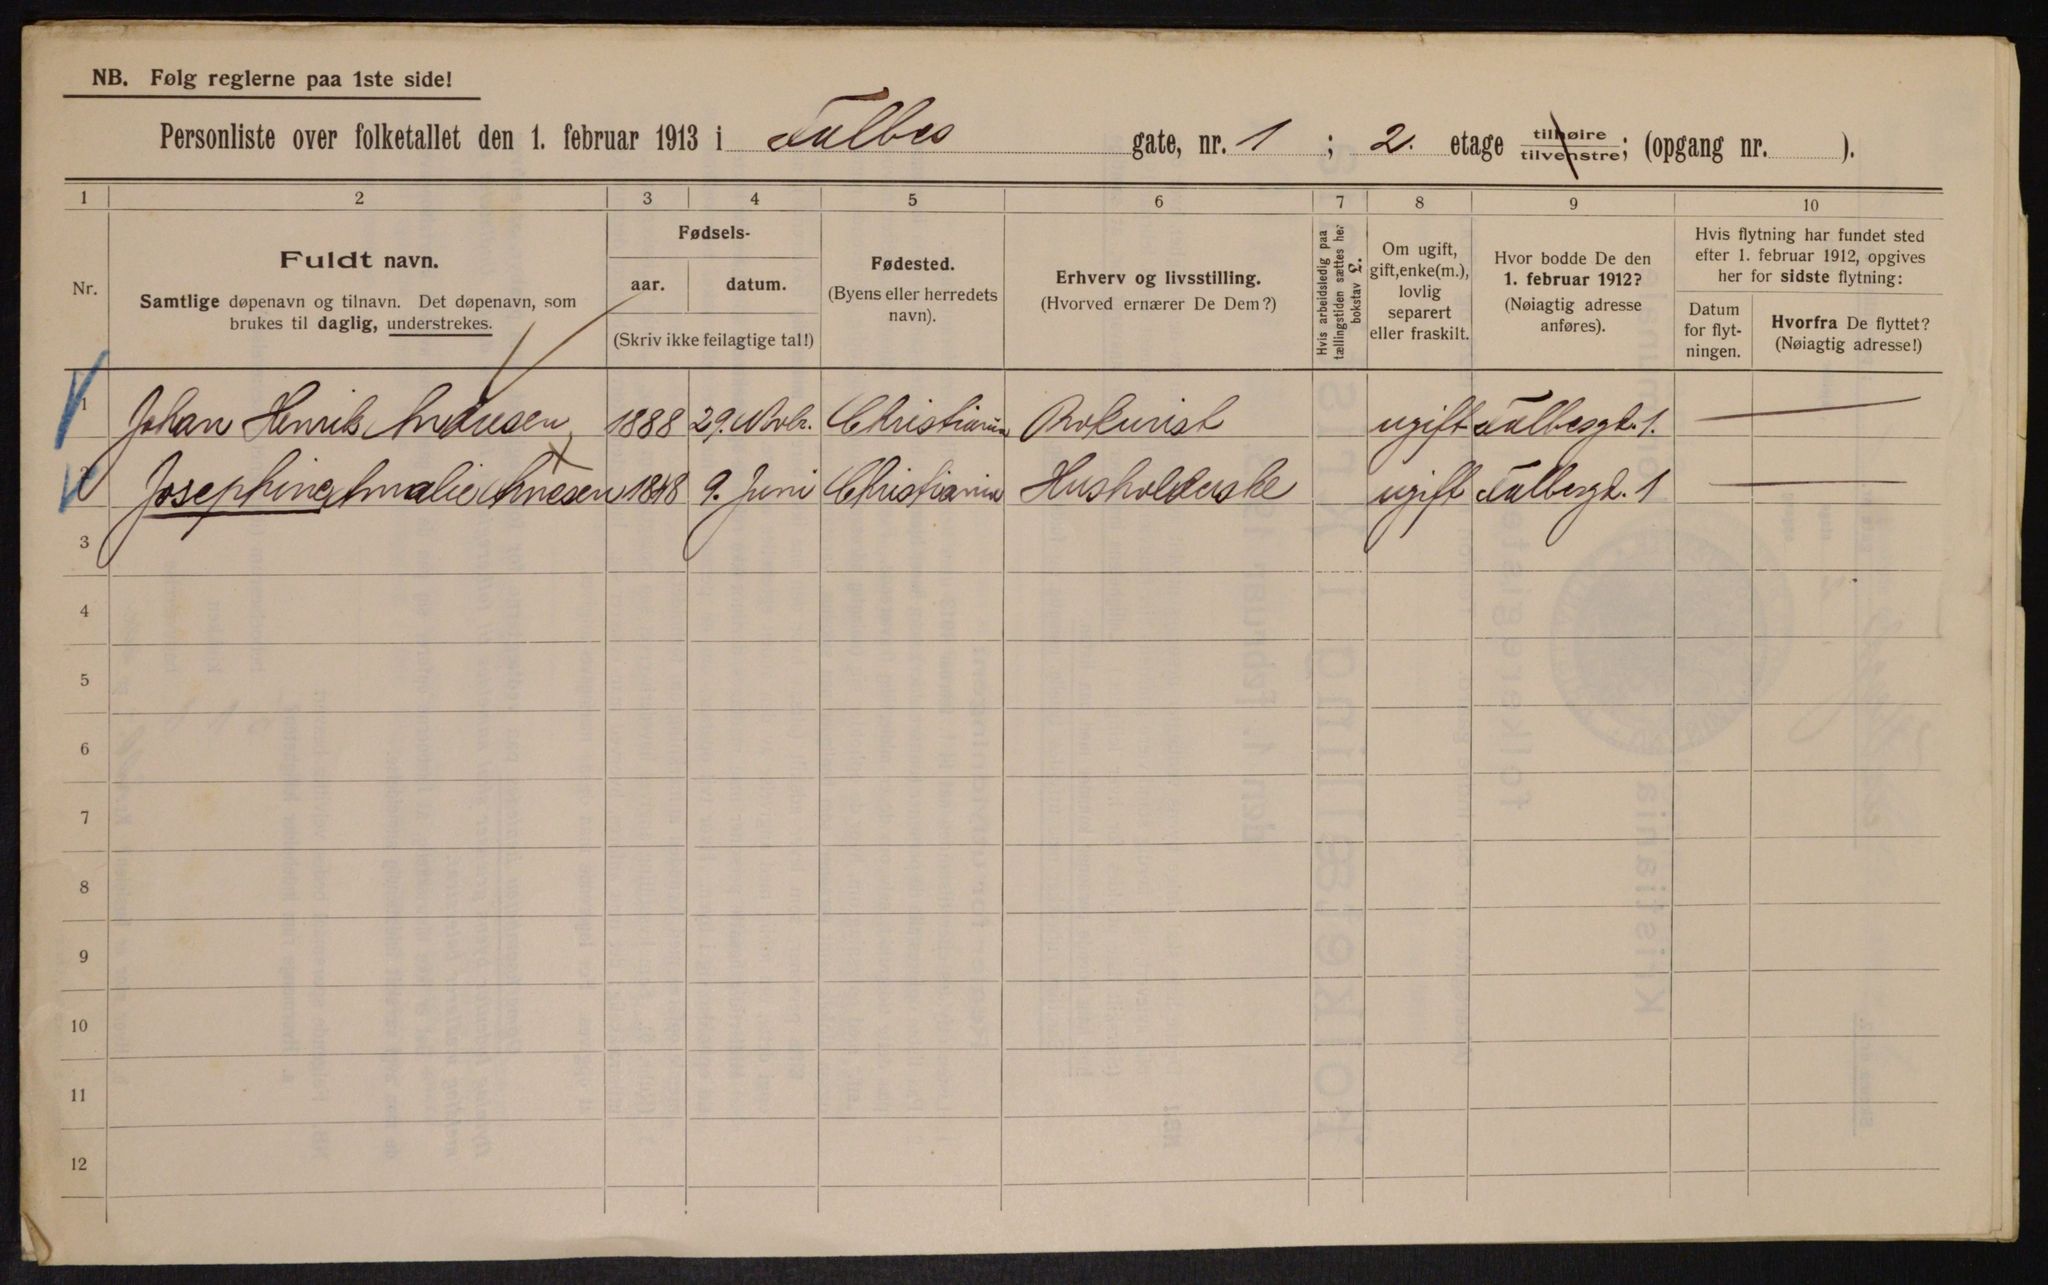 NB. Følg reglerne paa 1ste side!
Personliste over folketallet den 1. februar 1913 i Falbes gate, nr. 1 ; 2. etage tilhøire tilvenstre; (opgang nr. ).
1 2 3 4 5 6 7 8 9 10
Nr.
Fuldt navn.
Samtlige døpenavn og tilnavn. Det døpenavn, som
brukes til daglig, understrekes.
Fødsels-
aar. datum.
(Skriv ikke feilagtige tal!)
Fødested.
(Byens eller herredets
navn).
Erhverv og livsstilling.
(Hvorved ernærer De Dem?)
Hvis arbeidsledig paa
tællingstiden sættes her
bokstav £.
Om ugift,
gift, enke(m.),
lovlig
separert
eller fraskilt.
Hvor bodde De den
1. februar 1912?
(Nøiagtig adresse
anføres).
Hvis flytning har fundet sted
efter 1. februar 1912, opgives
her for sidste flytning:
Datum
for flyt-
ningen.
Hvorfra De flyttet?
(Nøiagtig adresse!)
1 Johan Henrik 1888 29. Novbr. Christiania Prokurist ugift Falbesgt. 1.
2 Josephine Amalie 1848 9. Juni Christiania Husholderske ugift Falbesgt. 1
3
4
5
6
7
8
9
10
11
12